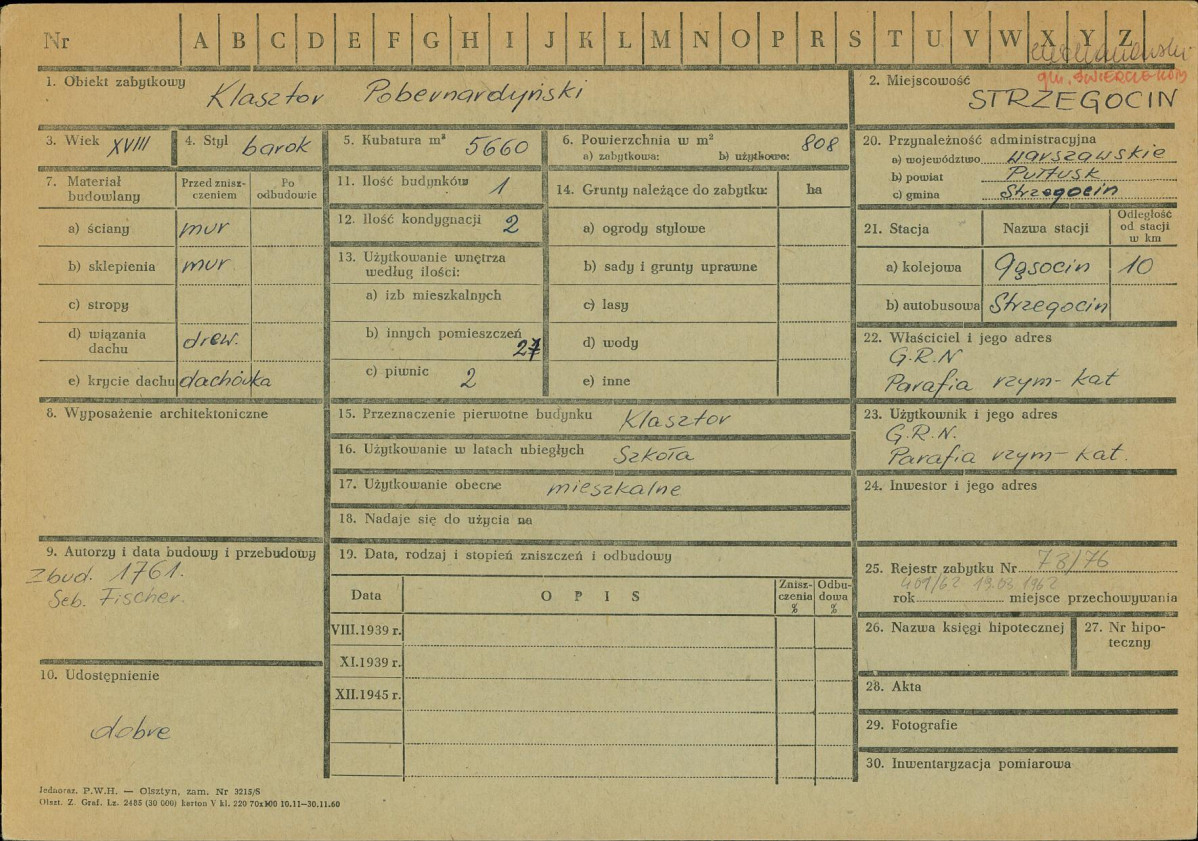 Nr A B C D E F G H I J K L M N O P R S T U V W X Y Z
gm. ŚWIERCZE-KOTY
1. Obiekt zabytkowy Klasztor Pobernardyński
2. Miejscowość
STRZEGOCIN
3. Wiek XVIII
4. Styl barok
5. Kubatura m³ 5660
6. Powierzchnia w m² 808
a) zabytkowa: b) użytkowa:
7. Materiał budowlany
Przed znisz-
czeniem
Po
odbudowie
a) ściany mur
b) sklepienia mur
c) stropy
d) wiązania
dachu drew.
e) krycie dachu dachówka
8. Wyposażenie architektoniczne
9. Autorzy i data budowy i przebudowy
Zbud. 1761.
Seb. Fischer.
10. Udostępnienie
dobre
11. Ilość budynków 1
12. Ilość kondygnacji 2
13. Użytkowanie wnętrza
według ilości:
a) izb mieszkalnych
b) innych pomieszczeń
27
c) piwnic 2
14. Grunty należące do zabytku: ha
a) ogrody stylowe
b) sady i grunty uprawne
c) lasy
d) wody
e) inne
15. Przeznaczenie pierwotne budynku Klasztor
16. Użytkowanie w latach ubiegłych Szkoła
17. Użytkowanie obecne mieszkalne
18. Nadaje się do użycia na
19. Data, rodzaj i stopień zniszczeń i odbudowy
Data
OPIS
Znisz-
czenia
%
Odbu-
dowa
%
VIII.1939 r.
XI.1939 r.
XII.1945 r.
20. Przynależność administracyjna
a) województwo warszawskie
b) powiat Pułtusk
c) gmina Strzegocin
21. Stacja
Nazwa stacji
Odległość
od stacji
w km
a) kolejowa Gąsocin 10
b) autobusowa Strzegocin
22. Właściciel i jego adres
G.R.N
Parafia rzym-kat
23. Użytkownik i jego adres
G.R.N.
Parafia rzym-kat.
24. Inwestor i jego adres
25. Rejestr zabytku Nr 78/76
401/62 19.03 1962
rok miejsce przechowywania
26. Nazwa księgi hipotecznej
27. Nr hipo-
teczny
28. Akta
29. Fotografie
30. Inwentaryzacja pomiarowa
Jednoraz. P.W.H. — Olsztyn, zam. Nr 3215/S
Olszt. Z. Graf. Lz. 2485 (30 000) karton V kl. 220 70x100 10.11—30.11.60